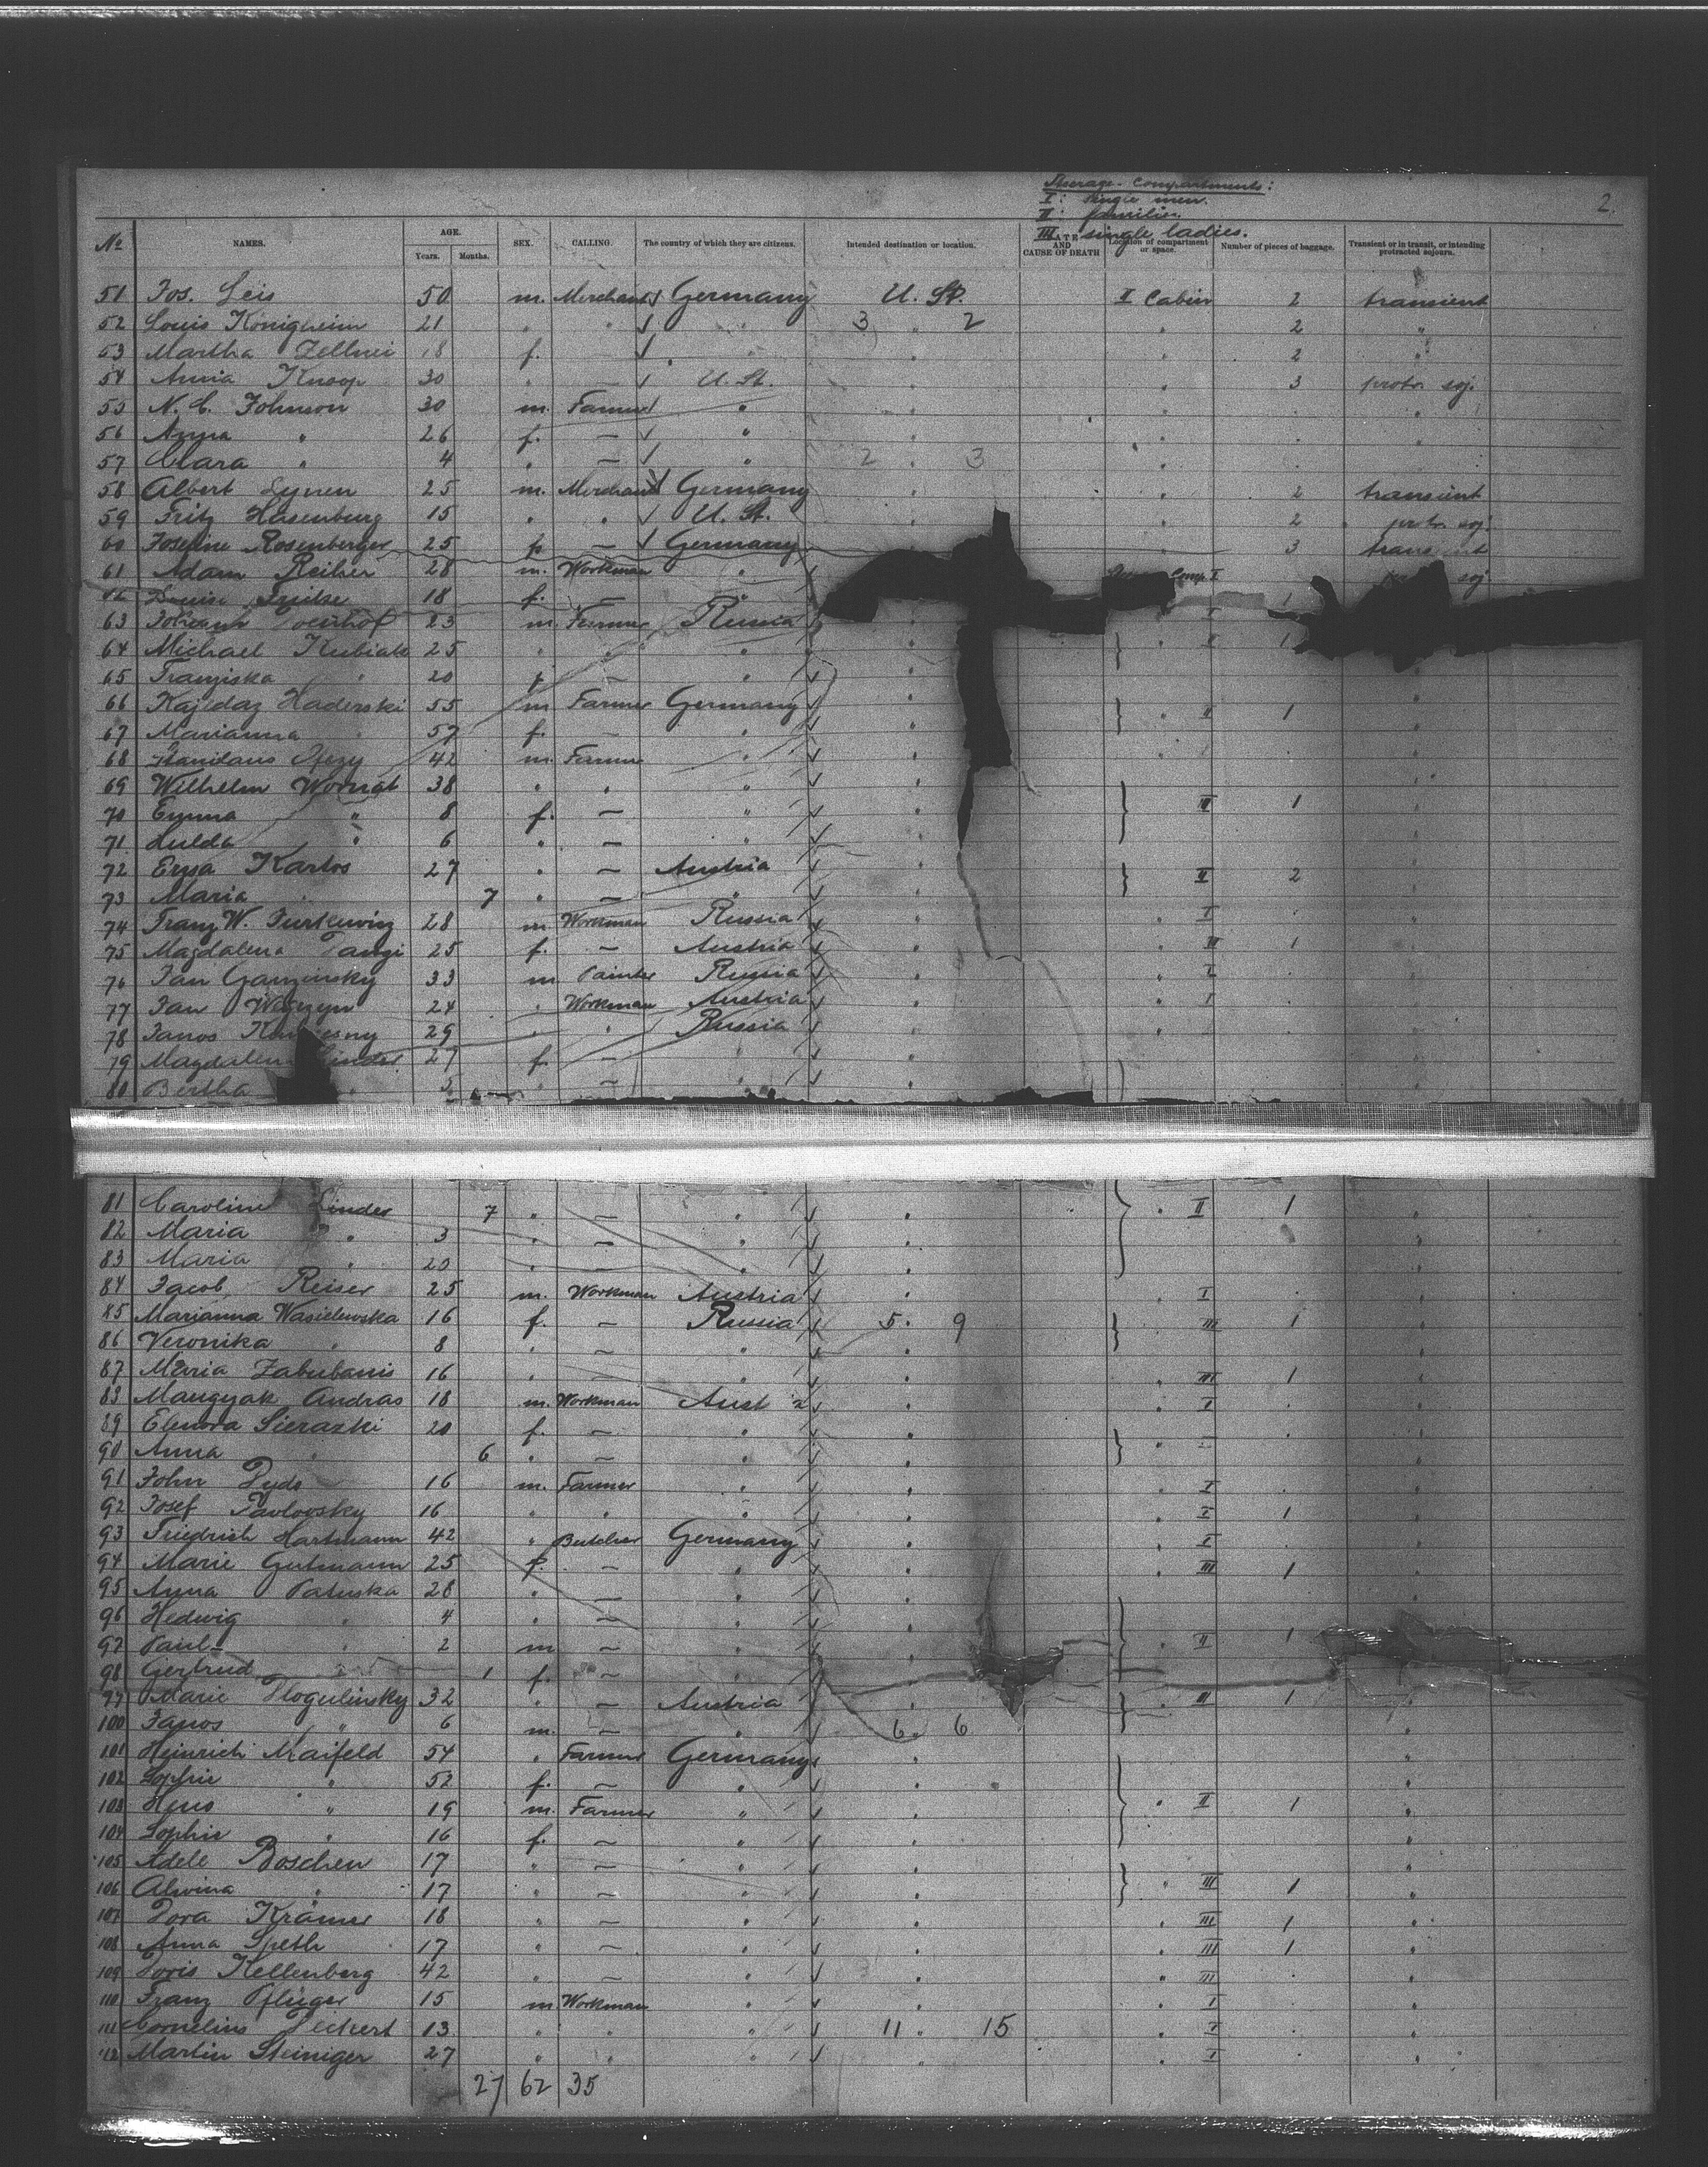 Steerage compartments:
I: single men.
II: families.
III single ladies.
2.
No NAMES. AGE. Years. Months. SEX. CALLING. The country of which they are citizens. Intended destination or location. DATE AND CAUSE OF DEATH Location of compartment or space. Number of pieces of baggage. Transient or in transit, or intending protracted sojourn.
51 Jos. Leis 50 m. Merchant Germany U. St. II Cabin 2 transient
52 Louis Königheim 21 " " " 3 " 2 " 2 "
53 Martha 18 f. " " " 2 "
54 Anna Knoop 30 " — U. St. " " 3 protr. soj.
55 N. C. Johnson 30 m. Farmer " " " . "
56 Anna " 26 f. — " " " . "
57 Clara " 4 " — " 2 " 3 " . "
58 Albert Lynen 25 m. Merchant Germany " " 2 transient
59 Fritz Hasenburg 15 " " U. St. " " 2 protr. soj.
60 Josefine Rosenberger 25 f. — Germany " " 3 transient
61 Adam Reiher 28 m. Workman " Comp. I soj
62 18 f. — " 1
63 Johann 23 m. Farmer Russia " I
64 Michael Kubiak 25 " " " " " II 1
65 Franziska " 20 f. — " " "
66 Kajedaz Haderski 55 m Farmer Germany " " II 1 "
67 Marianna " 57 f. — " " "
68 42 m. Farmer " " "
69 Wilhelm Wornat 38 " " " " "
70 Emma " 8 f. — " " III 1 "
71 Hulda " 6 " — " " "
72 Ersa Karlos 27 " — Austria " " II 2 "
73 Maria " 7 " — " " "
74 Franz W. 28 m Workman Russia " " I . "
75 Magdalena 25 f. — Austria " " III 1 "
76 Jan 33 m Painter Russia " " I . "
77 Jan 24 " Workman Austria " " I . "
78 Janos 29 " " Russia " " . "
79 Magdalena Linder 27 f. — " " "
80 Bertha " — " " "
81 Caroline Linder 7 " — " " " II 1 "
82 Maria " 3 " — " " "
83 Maria " 20 " — " " "
84 Jacob Reiser 25 m. Workman Austria " " I . "
85 Marianna Wasielewska 16 f. — Russia 5 " 9 III 1 "
86 Veronika " 8 " — " " "
87 Maria Zabulanis 16 " — " " " III 1 "
88 Mangyak Andras 18 m. Workman Aust " " I . "
89 Elenora Sierazki 20 f. — " " . "
90 Anna " 6 " — " " " "
91 John 16 m. Farmer " " " I . "
92 Josef Pavlovsky 16 " " " " " I 1 "
93 Friedrich Hartmann 42 " Butcher Germany " " I . "
94 Marie Gutmann 25 f. — " " " III 1 "
95 Anna Patuska 28 " — " " "
96 Hedwig " 4 " — " " "
97 Paul " 2 m — " " " II 1 "
98 Gertrud " 1 f. — " " "
99 Marie Plogulinsky 32 " — Austria " " III 1 "
100 Janos " 6 m. — " 6 " 6 "
101 Heinrich Maifeld 54 " Farmer Germany " "
102 Sophie " 52 f. — " " "
103 " 19 m. Farmer " " " II 1 "
104 Sophie " 16 f. — " " "
105 Adele Boschen 17 " — " " "
106 Alwina " 17 " — " " " III 1 "
107 Dora Krämer 18 " — " " " III 1 "
108 Anna Speth 17 " — " " " III 1 "
109 Doris Kellenberg 42 " — " " " III . "
110 Franz Pflüger 15 m Workman " " " I . "
111 Cornelius 13 " " " 11 " 15 " I . "
112 Martin Steiniger 27 " " " " " I . "
27 62 35